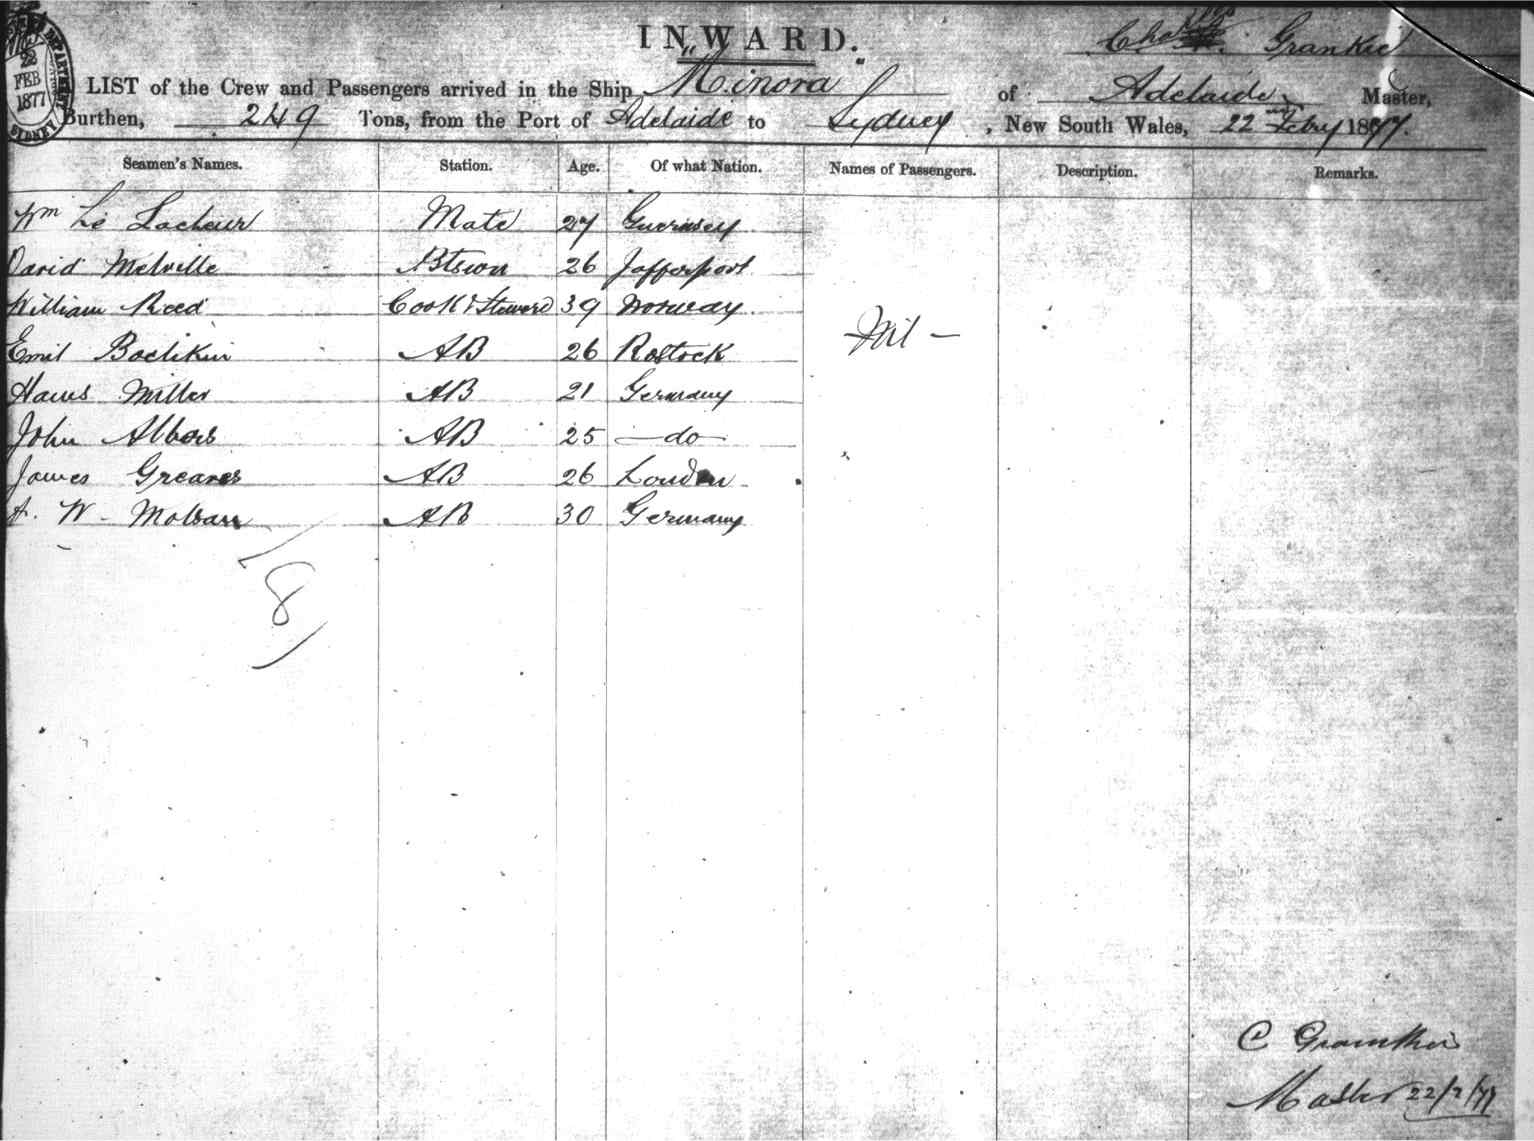 22
FEB
1877
DEPARTMENT
SYDNEY
INWARD.
Grankie
LIST of the Crew and Passengers arrived in the Ship "Minora" of Adelaide Master,
Burthen, 249 Tons, from the Port of Adelaide to Sydney, New South Wales, 22 Febry 1877.
Seamen's Names. Station. Age. Of what Nation. Names of Passengers. Description. Remarks.
Wm Le Lacheur Mate 27 Guernsey
David Melville Btswn 26
William Reed Cook & Steward 39 Norway
Nil —
Emil AB 26 Rostock
Hans Miller AB 21 Germany
John Albers AB 25 —do—
James Greaves AB 26 London
W. AB 30 Germany
8
C
Master 22/2/77